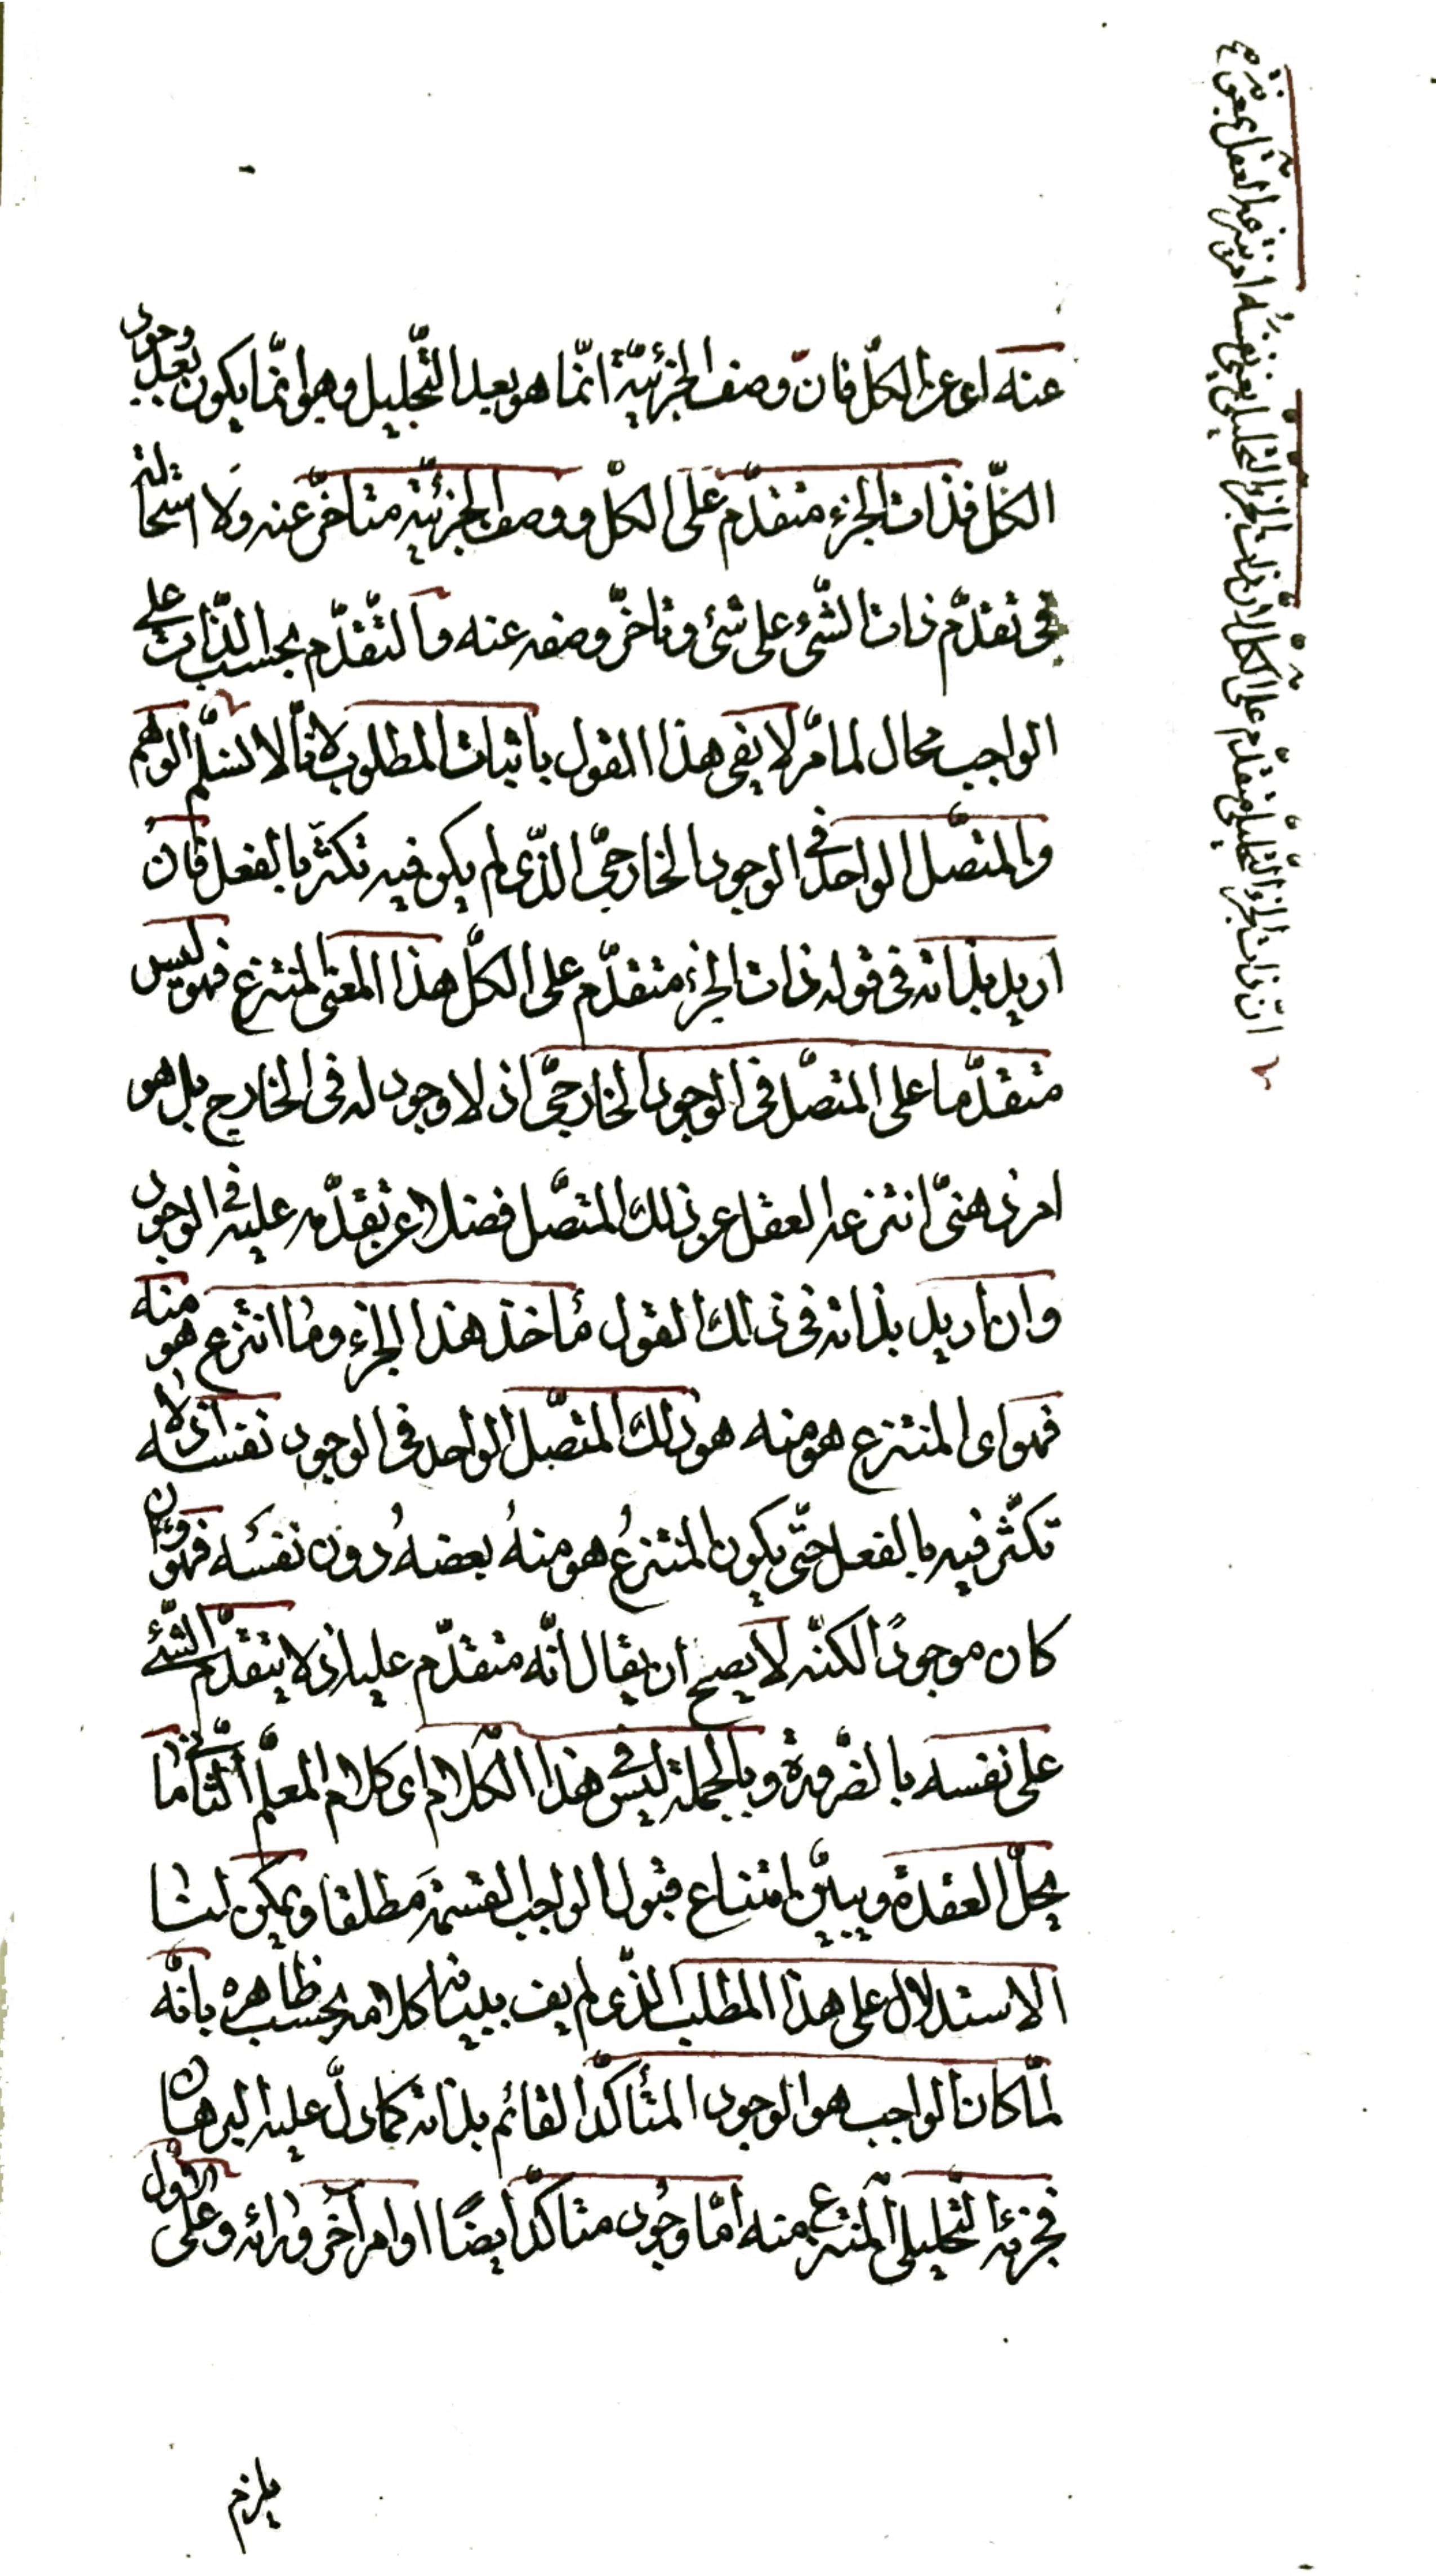 عنه اى عن الكلّ فانّ وصف الجزئيّة انّما هو بعد التّحليل وهو انّما يكون بعد وجود
الكلّ فذات الجزء متقدّم على الكلّ ووصف الجزئيّة متأخّر عنه ولا استحالة
فى تقدّم ذات الشّىء على شىء وتاخّر وصفه عنه والتّقدّم بحسب الذّات على
الواجب محال لما مرّ لا يفى هذا القول باثبات المطلوب لانّا لا نسلّم الوهم
والمتصّل الواحد فى الوجود الخارجىّ الذّى لم يكن فيه تكثّر بالفعل فان
اريد بذاته فى قوله ذات الجزء متقدّم على الكلّ هذا المعنى المنتزع فهو ليس
متقدّما على المتصّل فى الوجود الخارجىّ اذ لا وجود له فى الخارج بل هو
امر ذهنىّ انتزعه العقل عن ذلك المتصّل فضلا عن تقدّمه عليه فى الوجود
وان اريد بذاته فى ذلك القول مأخذ هذا الجزء وما انتزع هو منه
فهو اى المنتزع هو منه هو ذلك المتصّل الواحد فى الوجود نفسه اذ لا
تكثّر فيه بالفعل حتّى يكون المنتزعُ هو منهُ بعضهُ دون نفسَه فهو وان
كان موجودًا لكنّه لا يصح ان يقال انّه متقدّم عليه اذ لا يتقدّم الشّئ
على نفسه بالضّرورة وبالجملة ليس فى هذا الكلام اى كلام المعلّم الثّانى ما
يحلّ العقدة ويبيّن امتناع قبول الواجب القسمة مطلقا ويمكن لنا
الاستدلال على هذا المطلب الذّى لم يف ببيانه كلامه بحسب ظاهره بانّه
لمّا كان الواجب هو الوجود المتأكّد القائم بذاته كما دلّ عليه البرهان
فجزئه التّحليلى المنتزع منه امّا وجُود متأكّد ايضًا او امر آخر ورائه وعلى الاول
يلزم
انّ ذات الجزء التّحليلىّ متقدّم على الكلّ ان ذات الجزء التّحليلى يعنى نفسُه امر ينتزعه العقل